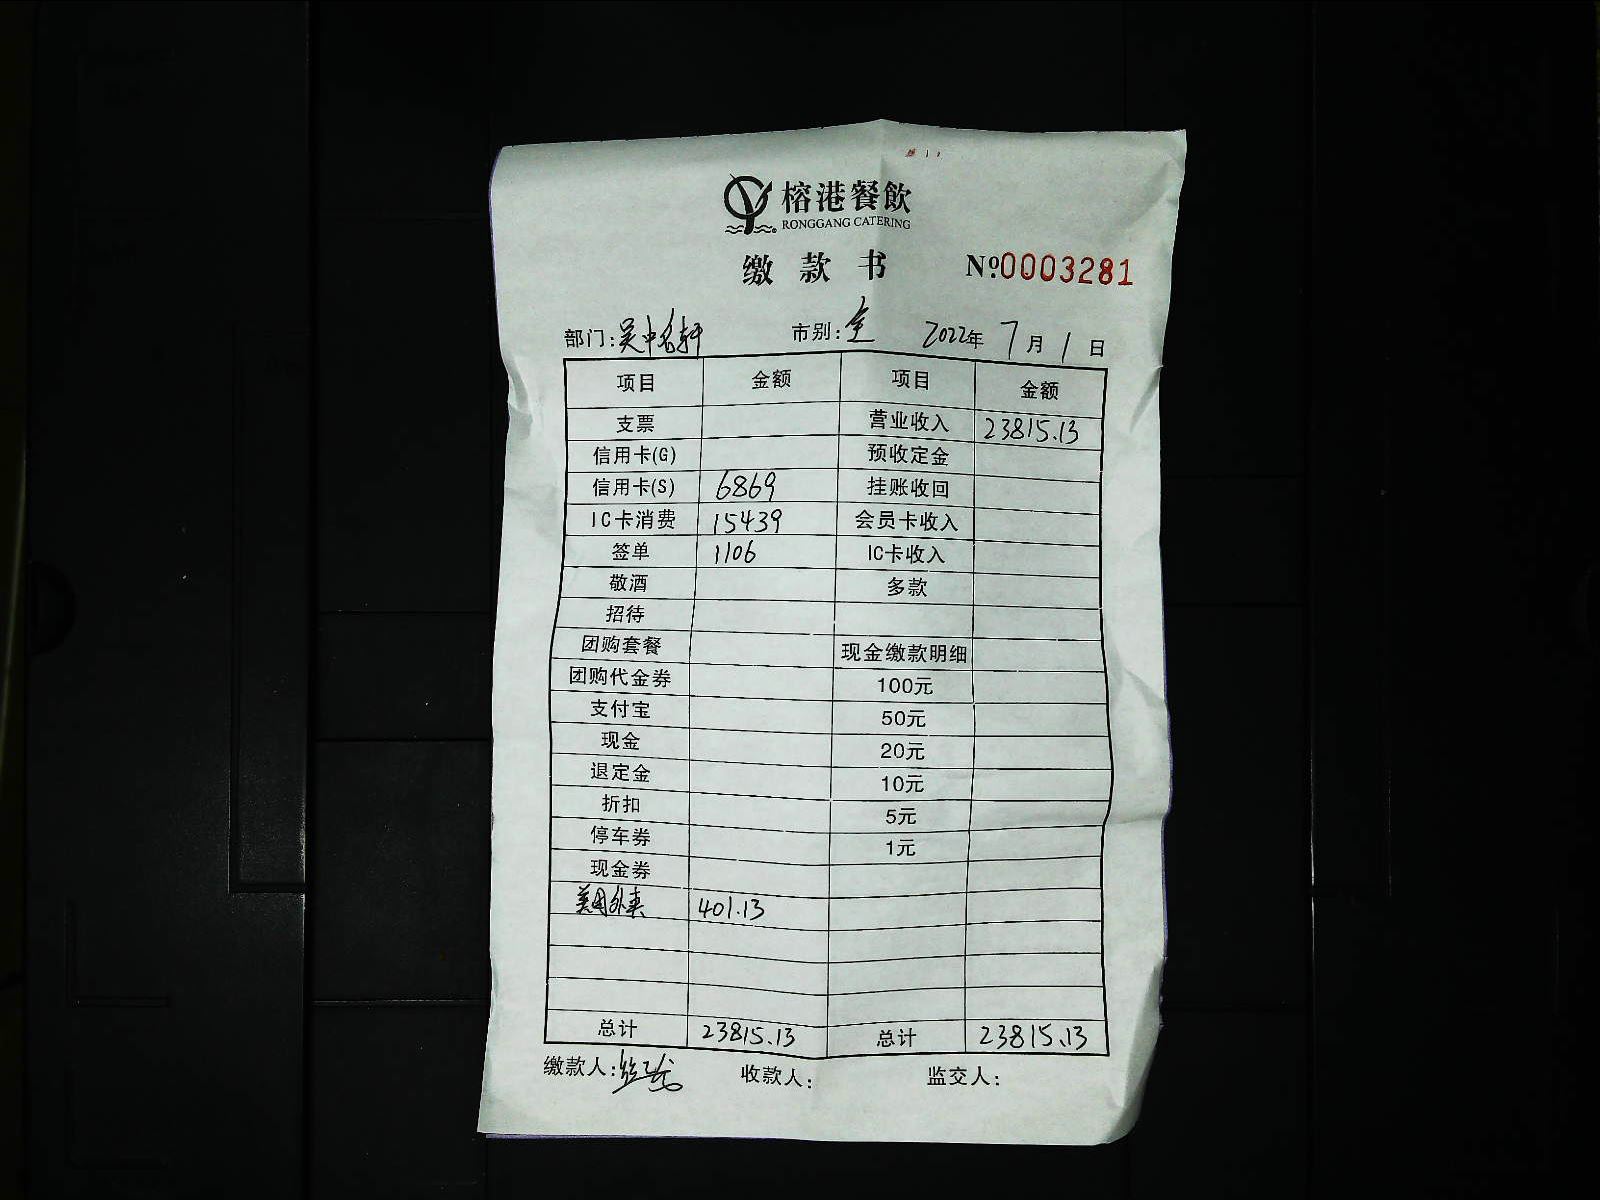 榕港餐飲
RONGGANG CATERING
缴款书 №0003281
部门:吴中名轩 市别:全 2022年7月1日
项目 金额 项目 金额
支票 营业收入 23815.13
信用卡(G) 预收定金
信用卡(S) 6869 挂账收回
IC卡消费 15439 会员卡收入
签单 1106 IC卡收入
敬酒 多款
招待
团购套餐 现金缴款明细
团购代金券 100元
支付宝 50元
现金 20元
退定金 10元
折扣 5元
停车券 1元
现金券
美团外卖 401.13
总计 23815.13 总计 23815.13
缴款人: 收款人: 监交人: